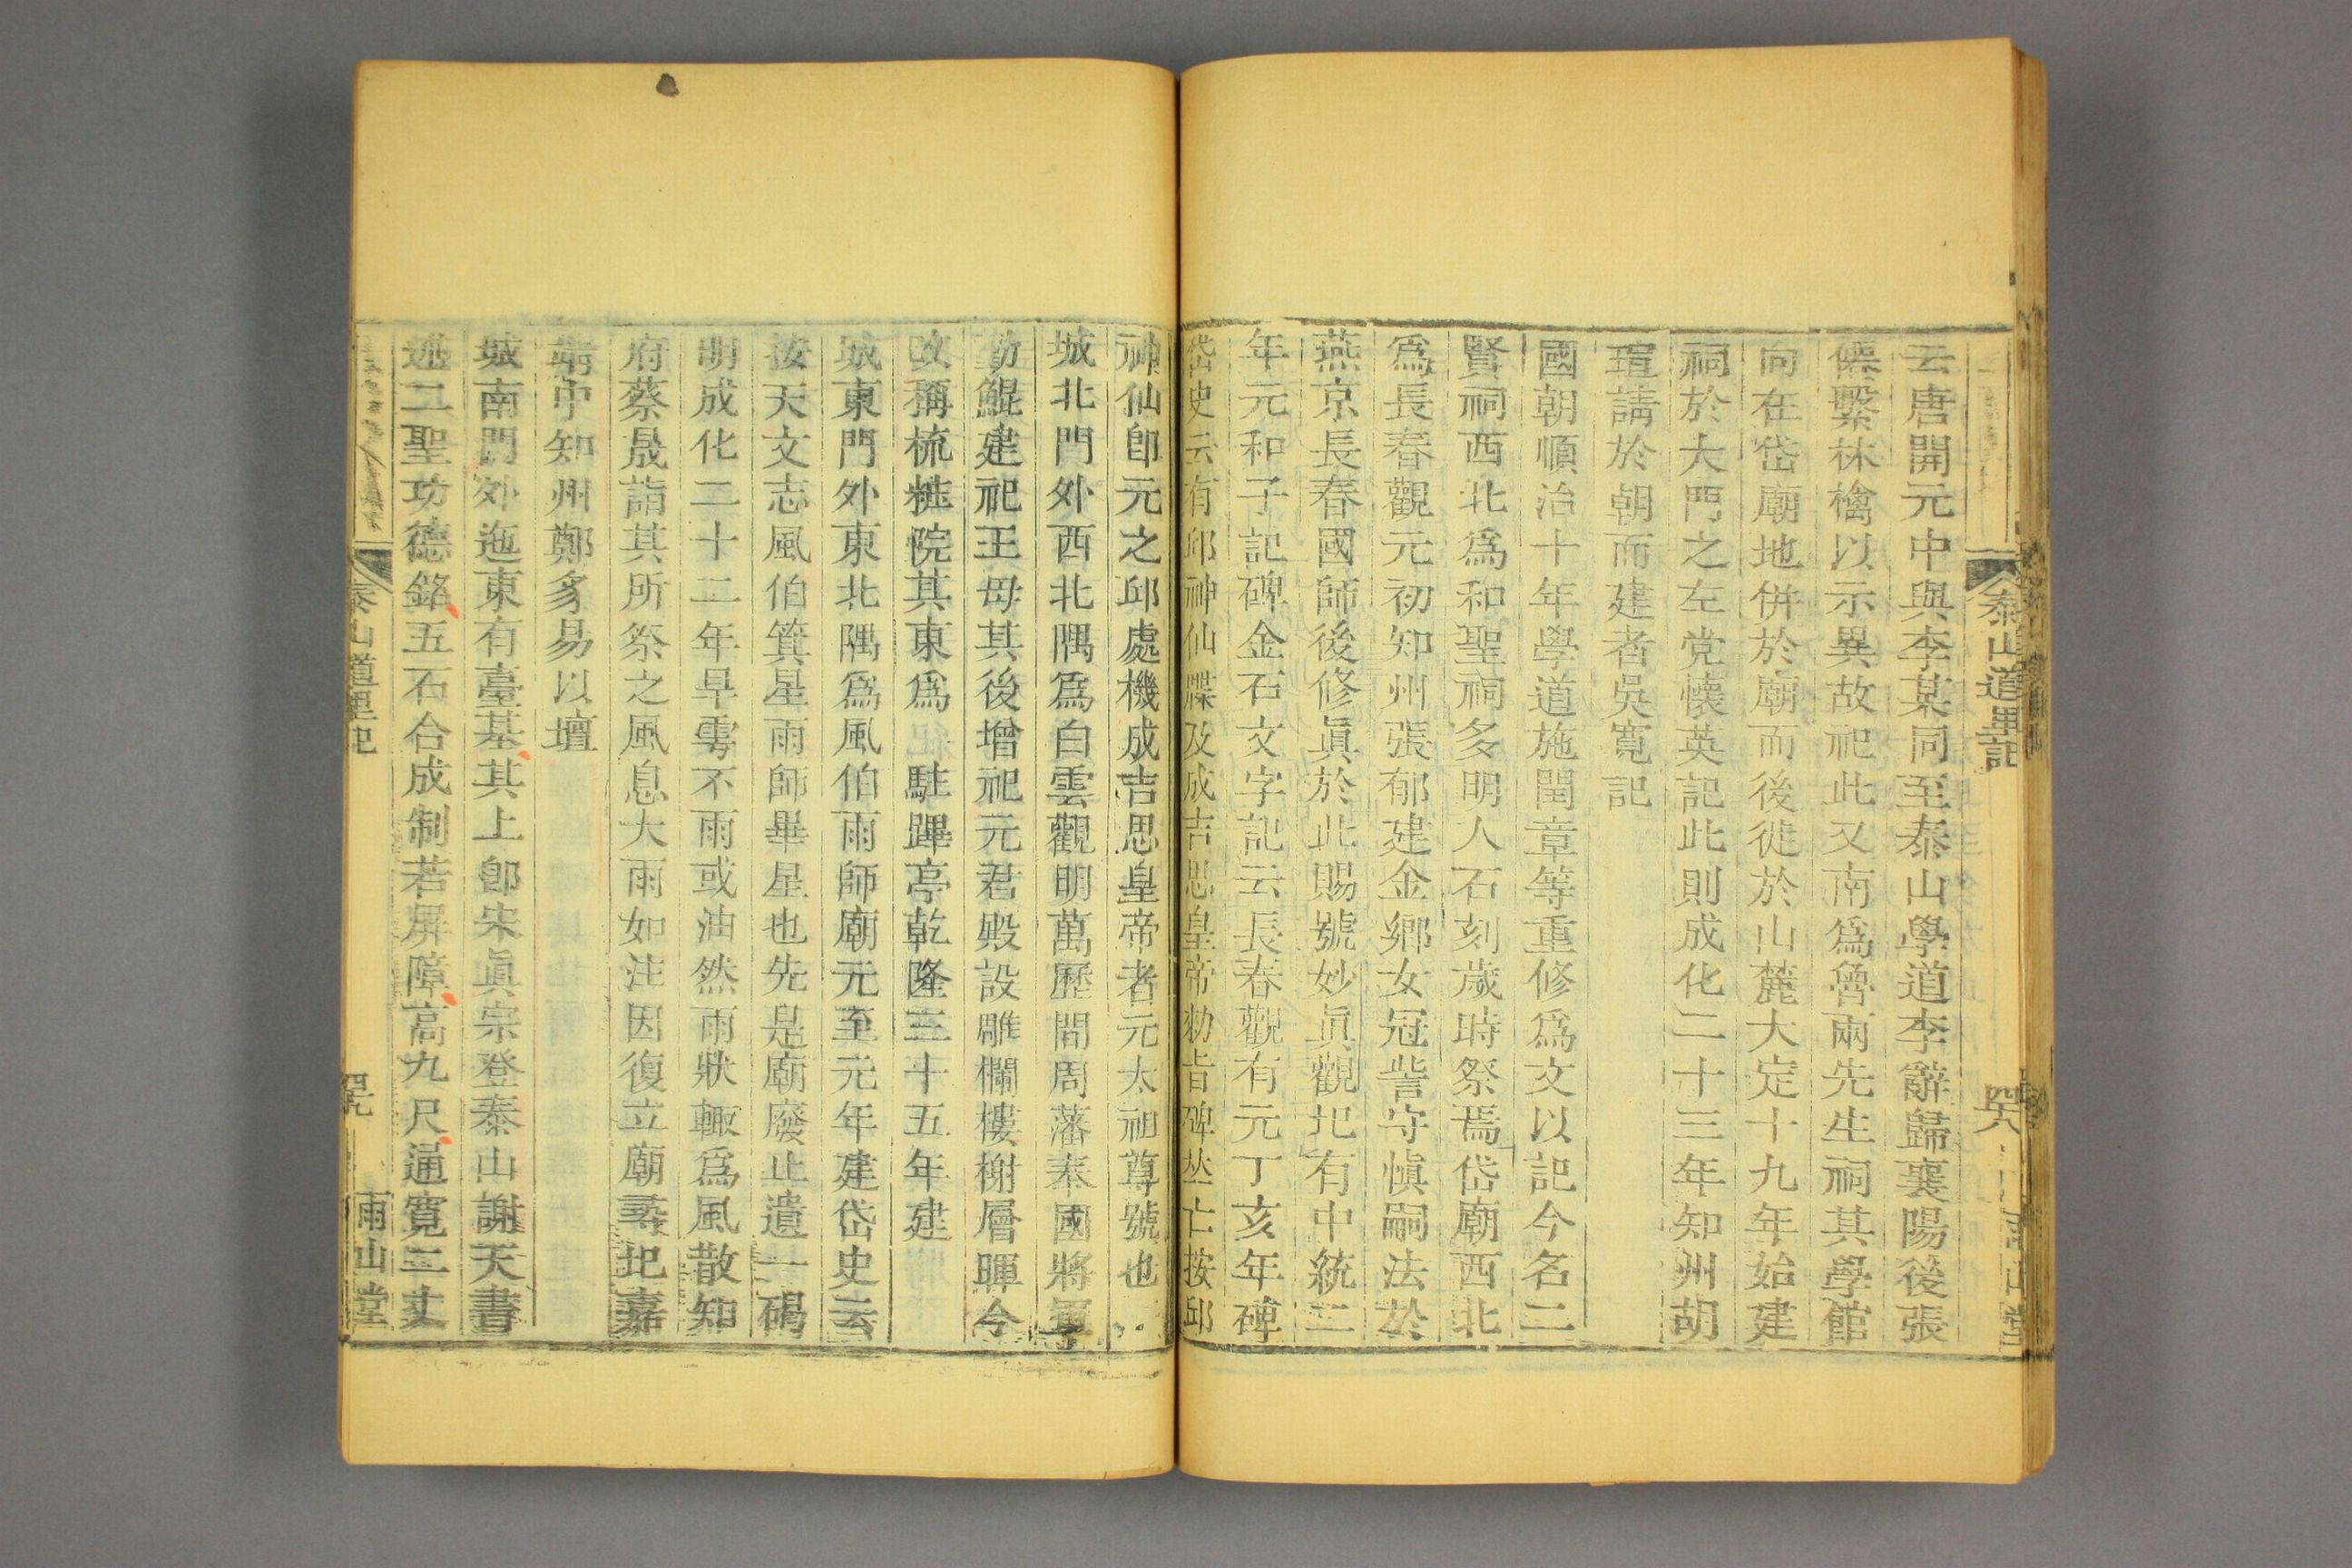 泰山道里記
四十八
雨山堂
云唐開元中與李某同至泰山學道李辭歸襄陽後張
僕繫林檎以示異故祀此又南爲魯兩先生祠其學館
向在岱廟地併於廟而後徙於山麓大定十九年始建
祠於大門之左党懷英記此則成化二十三年知州胡
瑄請於朝而建者吳寬記
國朝順治十年學道施閏章等重修爲文以記今名二
賢祠西北爲和聖祠多明人石刻歲時祭焉岱廟西北
爲長春觀元初知州張郁建金鄉女冠訾守慎嗣法於
燕京長春國師後修眞於此賜號妙眞觀圯有中統二
年元和子記碑金石文字記云長春觀有元丁亥年碑
岱史云有邱神仙牒及成吉思皇帝勅旨碑竝亡按邱
神仙卽元之邱處機成吉思皇帝者元太祖尊號也
城北門外西北隅爲白雲觀明萬歷間周藩奉國將軍
勤鯤建祀王母其後增祀元君殿設雕欄樓榭層暉今
改稱梳粧院其東爲駐蹕亭乾隆三十五年建
城東門外東北隅爲風伯雨師廟元至元年建岱史云
按天文志風伯箕星雨師畢星也先是廟廢止遺一碣
明成化二十二年旱雩不雨或油然雨狀輒爲風散知
府蔡晟詣其所祭之風息大雨如注因復立廟尋圯嘉
靖中知州鄭豸易以壇
城南門外迤東有臺基其上卽宋眞宗登泰山謝天書
述二聖功德銘五石合成制若屏障高九尺通寬二丈
泰山道里記
四十九
雨山堂